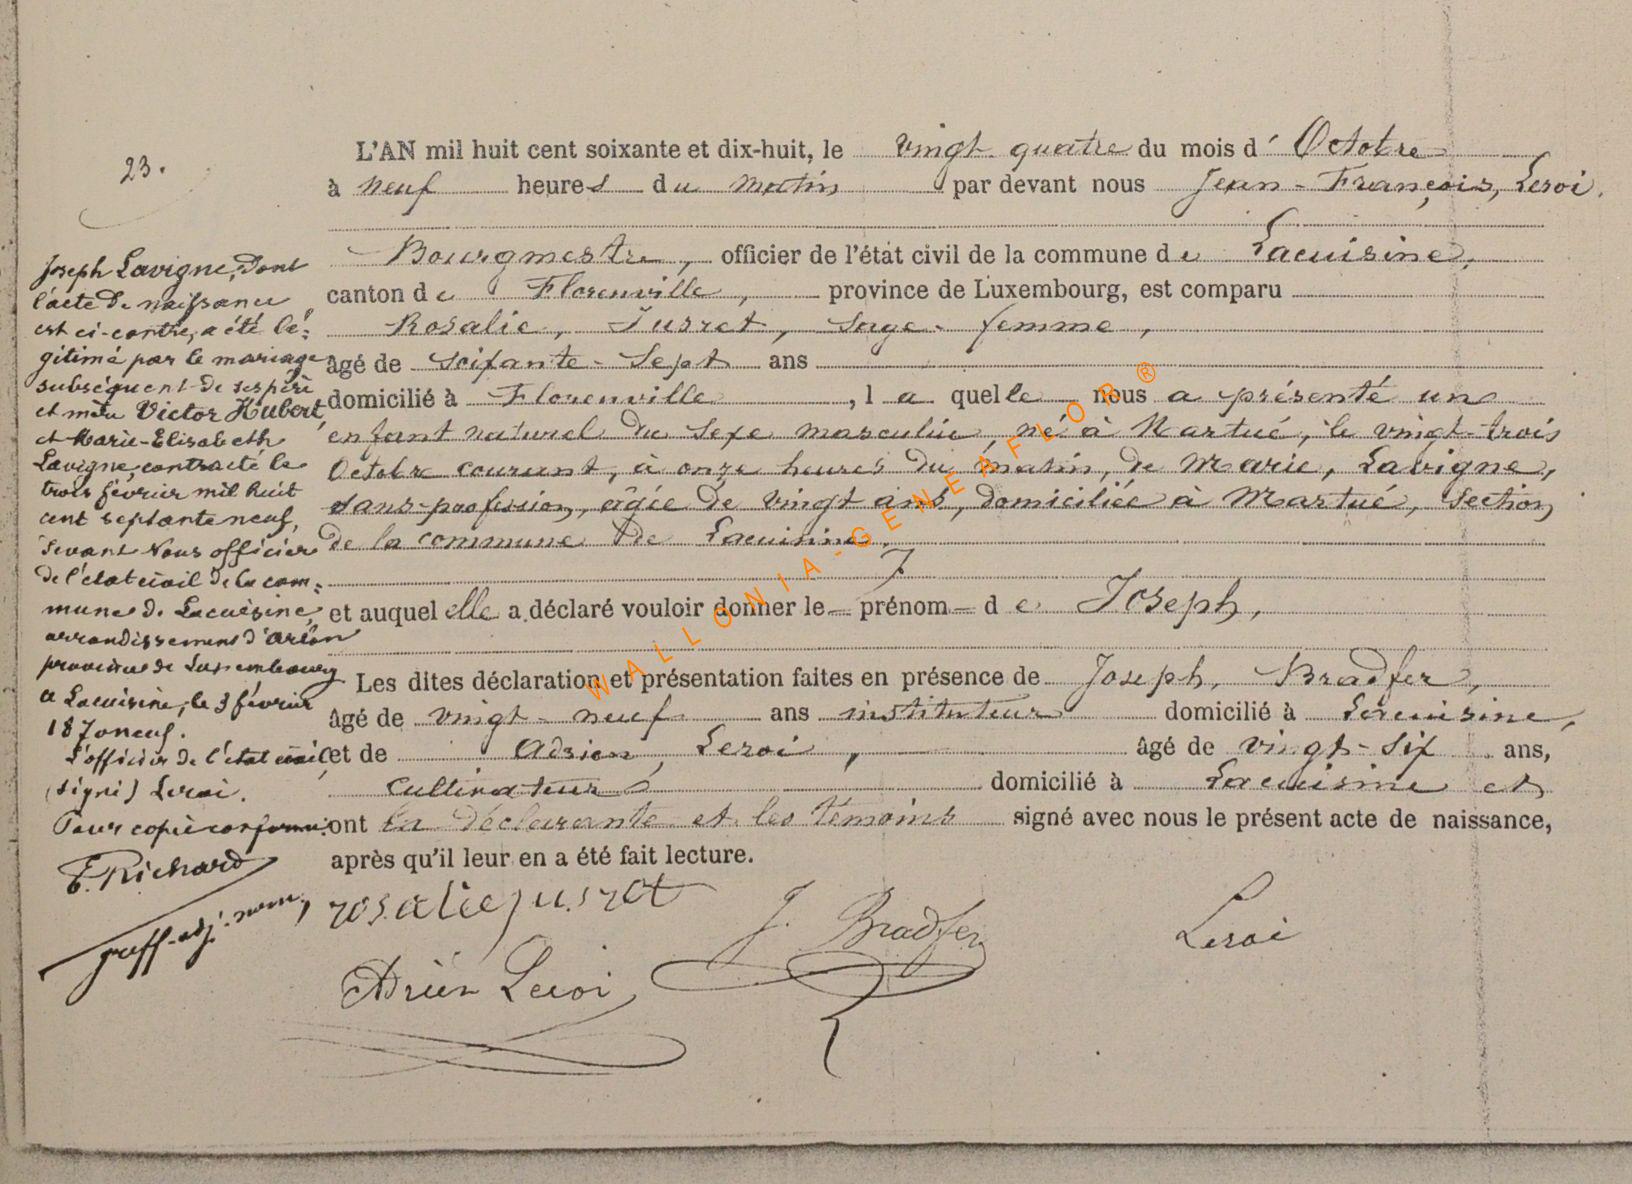 23.
Joseph Lavigne, dont
l'acte de naissance
est ci-contre, a été lé=
gitimé par le mariage
subséquent de ses père
et mère Victor Hubert,
et Marie-Elisabeth
Lavigne, contracté le
trois février mil huit
cent septante neuf,
devant Nous officier
de l'état civil de la com=
mune de Lacuisine,
arrondissement d'Arlon
province de Luxembourg
a Lacuisine, le 3 février
187oneuf.
L'officier de l'état civil,
(signé) Leroi.
Pour copie conforme:
E. Richard
greff-adj.
L'AN mil huit cent soixante et dix-huit, le vingt quatre du mois d' Octobre
à neuf heures du matin par devant nous Jean-François, Leroi.
Bourgmestre, officier de l'état civil de la commune de Lacuisine,
canton de Florenville, province de Luxembourg, est comparu
Rosalie, Jusret, Sage-femme,
âgé de soixante-sept ans
domicilié à Florenville, laquelle nous a présenté un
enfant naturel du sexe masculin, né à Martué, le vingt-trois
Octobre courant, à onze heures du matin, de Marie, Lavigne,
sans-profession, âgée de vingt ans, domiciliée à Martué, section
de la commune de Lacuisine.
et auquel elle a déclaré vouloir donner le prénom de Joseph,
Les dites déclaration et présentation faites en présence de Joseph, Bradfer,
âgé de vingt-neuf ans instituteur domicilié à Lacuisine,
et de Adrien, Leroi, âgé de vingt-six ans,
cultivateur domicilié à Lacuisine et
ont la déclarante et les témoins signé avec nous le présent acte de naissance,
après qu'il leur en a été fait lecture.
rosalie jusret
J. Bradfer
Leroi
Adrien Leroi
WALLONIA-GENEAFLOR®